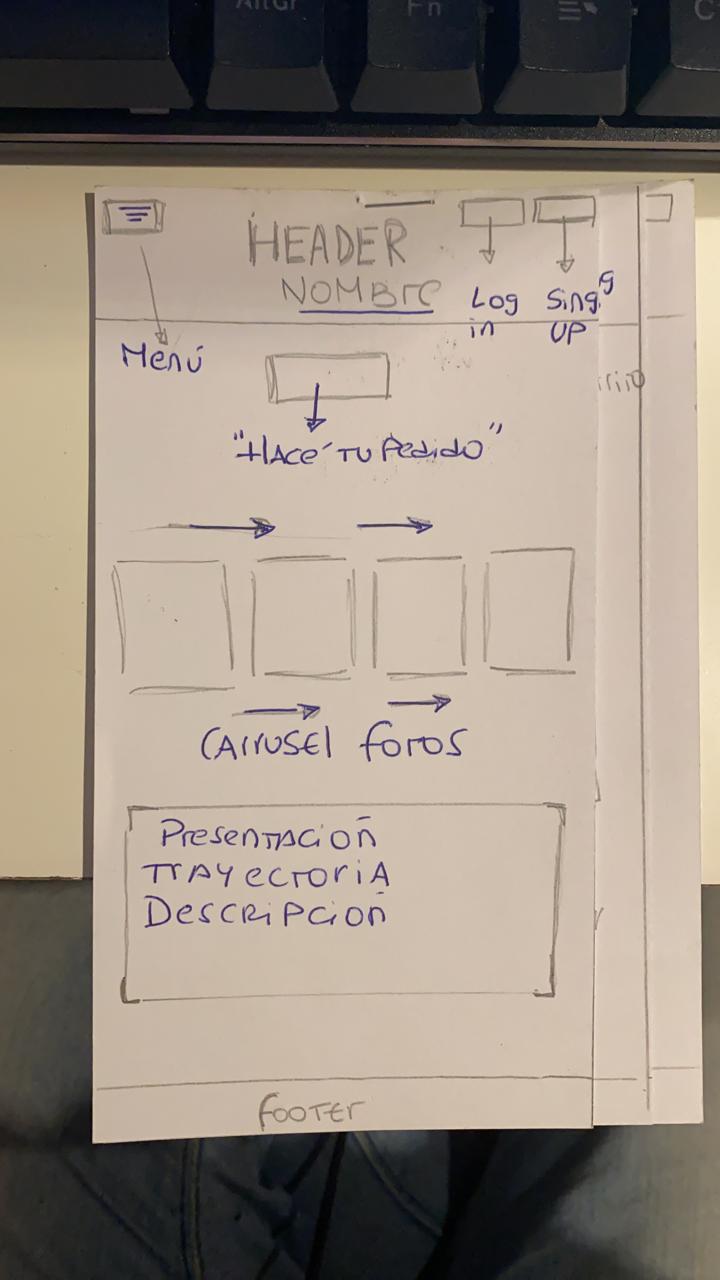 AltGr
Fn
HEADER
NOMBre
Log
in
Sing
UP
Menú
"HAce´ TU Pedido"
CArrusel foTos
PresenTAcioñ
TrAyecToriA
DescRipcioñ
fooTer